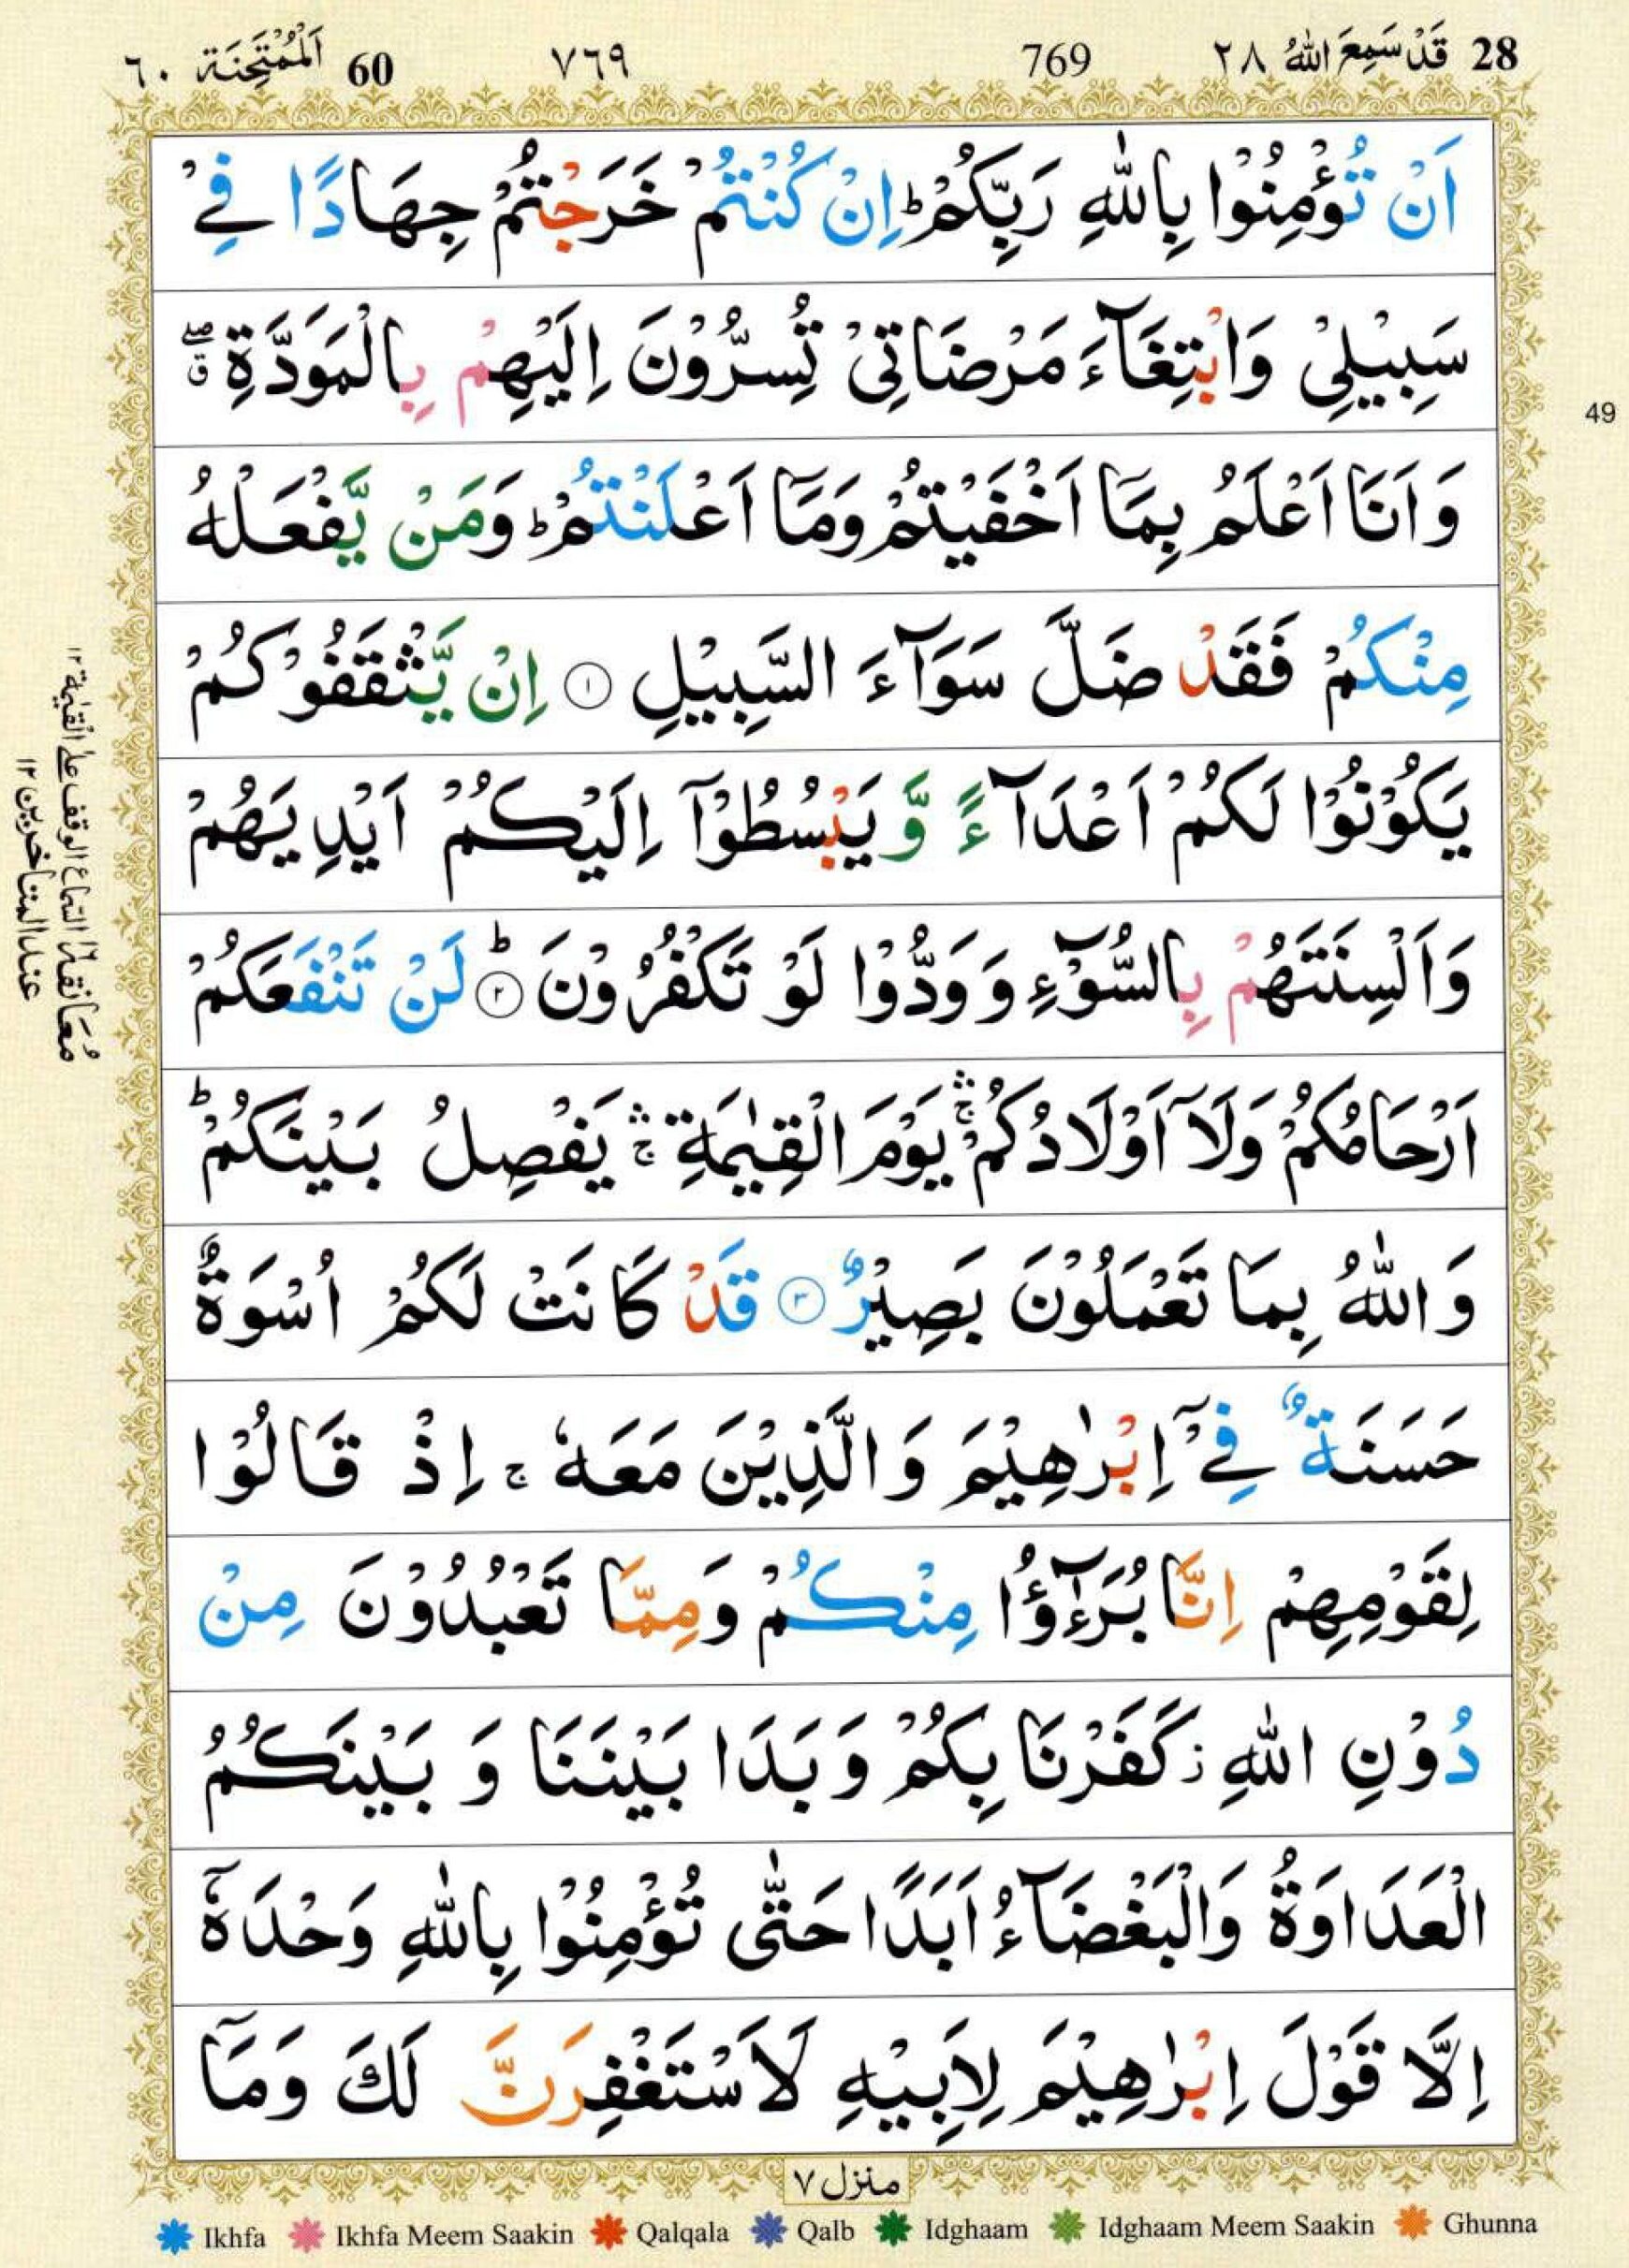 28 قَدْ سَمِعَ اللهُ ٢٨ 769 ٧٦٩ 60 اَلْمُمْتَحِنَة ٦٠
اَنْ تُؤْمِنُوْا بِاللّٰهِ رَبِّكُمْ ؕ اِنْ كُنْتُمْ خَرَجْتُمْ جِهَادًا فِيْ
سَبِيْلِيْ وَابْتِغَآءَ مَرْضَاتِيْ تُسِرُّوْنَ اِلَيْهِمْ بِالْمَوَدَّةِ ۖۗ
وَاَنَا اَعْلَمُ بِمَاۤ اَخْفَيْتُمْ وَمَاۤ اَعْلَنْتُمْ ؕ وَمَنْ يَّفْعَلْهُ
مِنْكُمْ فَقَدْ ضَلَّ سَوَآءَ السَّبِيْلِ ۝۱ اِنْ يَّثْقَفُوْكُمْ
يَكُوْنُوْا لَكُمْ اَعْدَآءً وَّ يَبْسُطُوْٓا اِلَيْكُمْ اَيْدِيَهُمْ
وَاَلْسِنَتَهُمْ بِالسُّوْٓءِ وَ وَدُّوْا لَوْ تَكْفُرُوْنَ ۝۲ؕ لَنْ تَنْفَعَكُمْ
اَرْحَامُكُمْ وَلَاۤ اَوْلَادُكُمْ ۛۚ يَوْمَ الْقِيٰمَةِ ۛۚ يَفْصِلُ بَيْنَكُمْ ؕ
وَ اللّٰهُ بِمَا تَعْمَلُوْنَ بَصِيْرٌ ۝۳ قَدْ كَانَتْ لَكُمْ اُسْوَةٌ
حَسَنَةٌ فِيْۤ اِبْرٰهِيْمَ وَالَّذِيْنَ مَعَهٗ ۚ اِذْ قَالُوْا
لِقَوْمِهِمْ اِنَّا بُرَءٰٓؤُا مِنْكُمْ وَمِمَّا تَعْبُدُوْنَ مِنْ
دُوْنِ اللّٰهِ ز كَفَرْنَا بِكُمْ وَ بَدَا بَيْنَنَا وَ بَيْنَكُمُ
الْعَدَاوَةُ وَالْبَغْضَآءُ اَبَدًا حَتّٰى تُؤْمِنُوْا بِاللّٰهِ وَحْدَهٗۤ
اِلَّا قَوْلَ اِبْرٰهِيْمَ لِاَبِيْهِ لَاَسْتَغْفِرَنَّ لَكَ وَمَاۤ
49
مُعَانقة ١٦ السّماع الوقف علے القيٰمة ١٢
عند المتاخرين ١٢
منزل ٧
Ikhfa Ikhfa Meem Saakin Qalqala Qalb Idghaam Idghaam Meem Saakin Ghunna